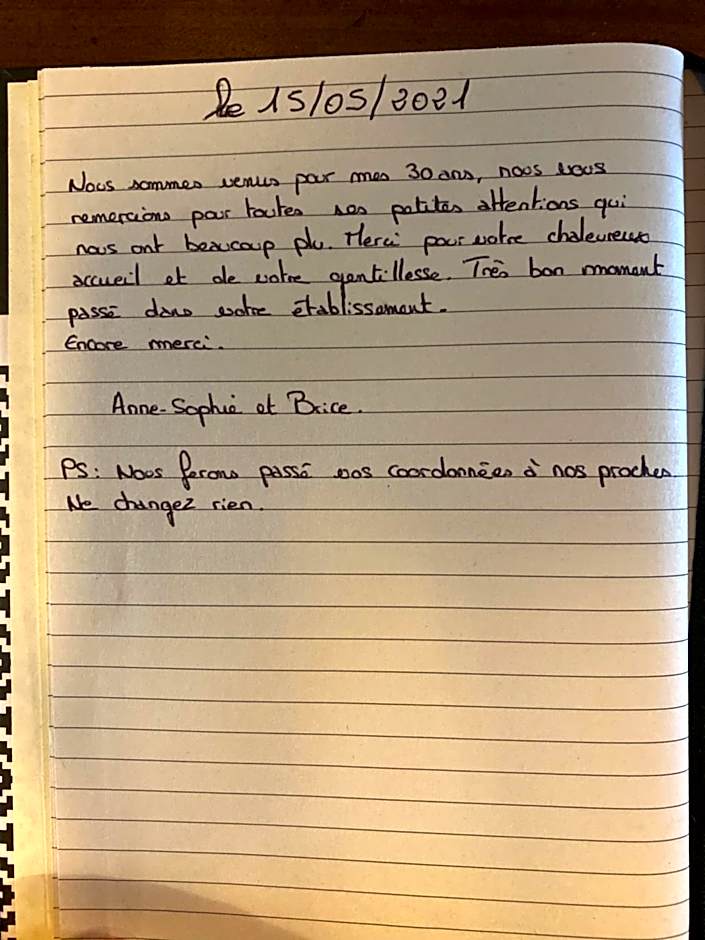 Le 15/05/2021
Nous sommes venus pour mes 30 ans, nous vous
remercions pour toutes vos petites attentions qui
nous ont beaucoup plu. Merci pour votre chaleureux
accueil et de votre gentillesse. Très bon moment
passé dans votre établissement.
Encore merci.
Anne-Sophie et Brice.
PS: Nous ferons passé vos coordonnées à nos proches.
Ne changez rien.